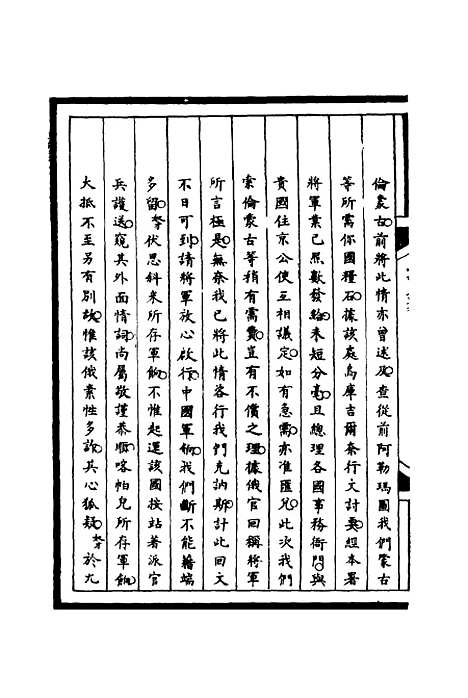 倫蒙古前將此情亦曾述及查從前阿勒瑪圖我們蒙古
等所需你國糧石據該處烏庫吉爾奈行文討要經本署
將軍業已照數發給未短分毫且總理各國事務衙門與
貴國住京公使互相議定如有急需亦准匯兌此次我們
索倫蒙古等稍有需費豈有不償之理據俄官回稱將軍
所言極是無奈我已將此情咨行我們克訥斯計此回文
不日可到請將軍放心啟行中國軍餉我們斷不能藉端
多留等伏思斜米所存軍餉不惟起運該國按站著派官
兵護送窺其外面情詞尚屬敬謹恭順喀帕兒所存軍餉
大抵不至另有別故惟該俄素性多詐其心狐疑等於九